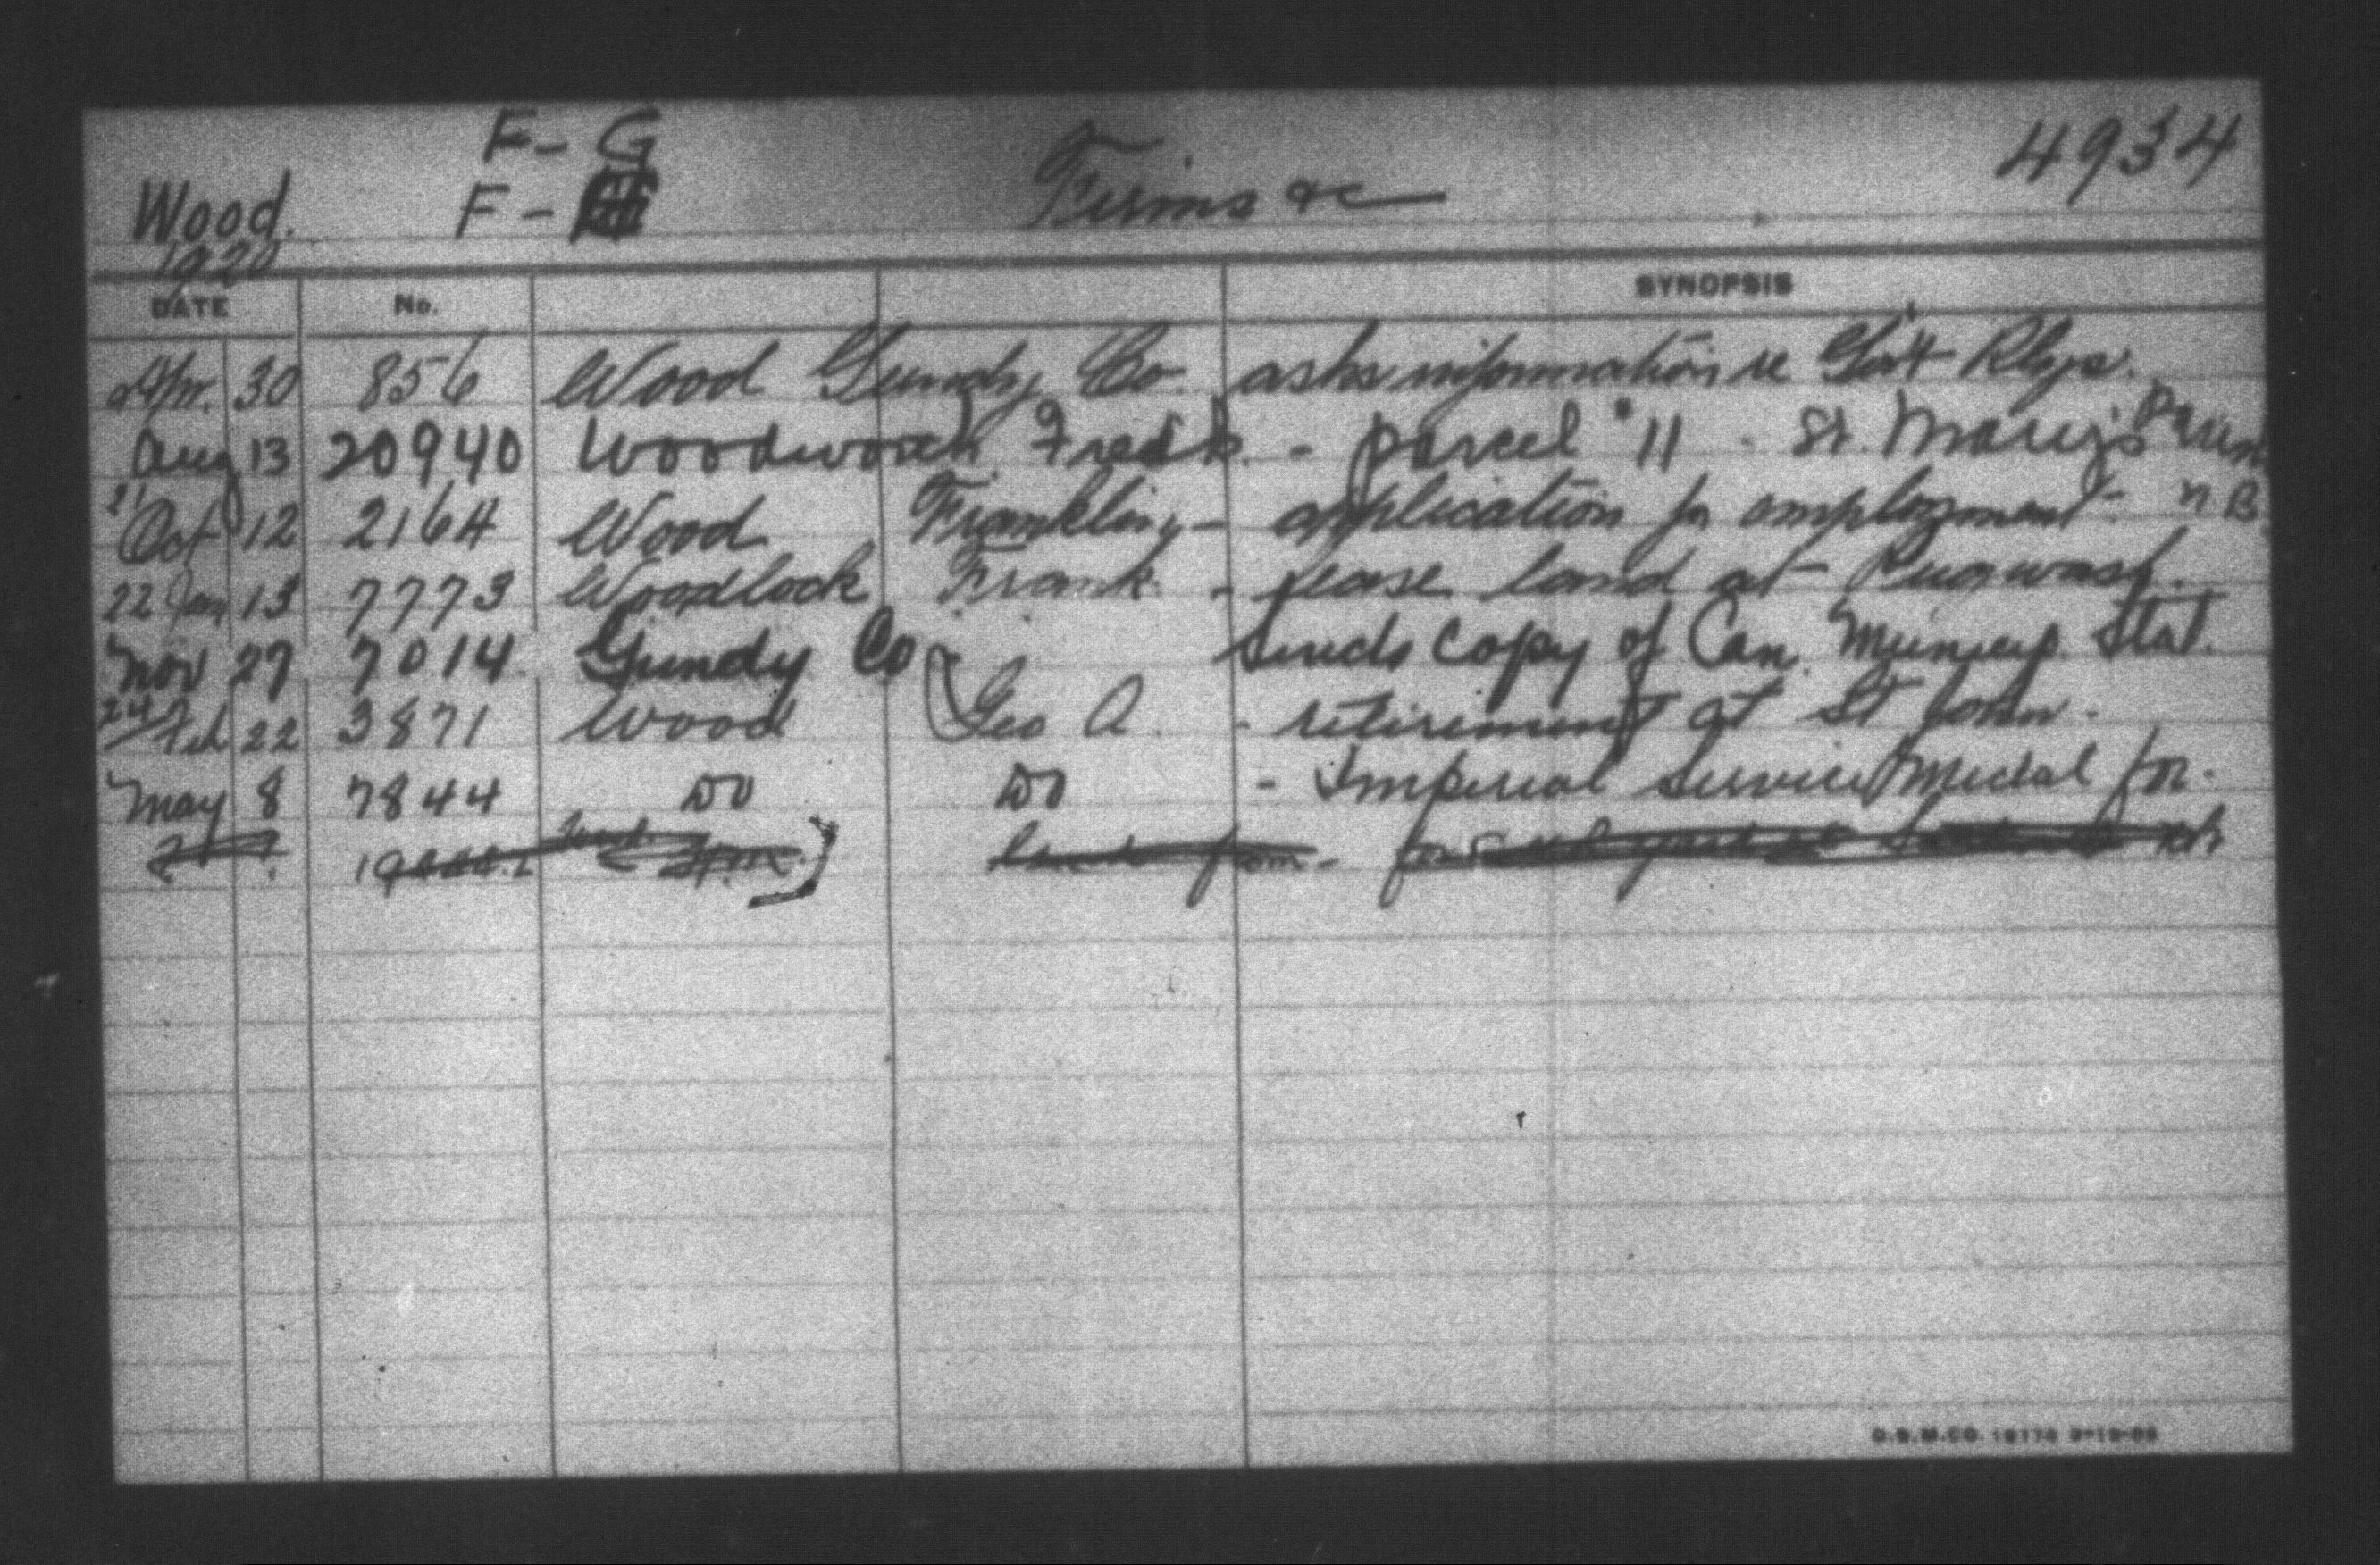 F - G
4934
Wood. F - Firms &c
1920
DATE No. SYNOPSIS
Apr. 30 856 Wood Gundy Co asks information re Gov't Rlys.
Aug 13 20940 Woodworth Fredk. - parcel #11 - St. Mary's
21 N.B.
Oct 12 2164 Wood Franklin - application for employment.
22 Jan 13 7773 Woodlock Frank - lease land at Pugwash.
Nov 27 7014 Gundy Co - Sends copy of Can. Municip. Stat.
24 Feb 22 3871 Wood Geo A. - retirement at St John.
May 8 7844 Do Do - Imperial Service Medal for.
from - for
O.S.M.CO.